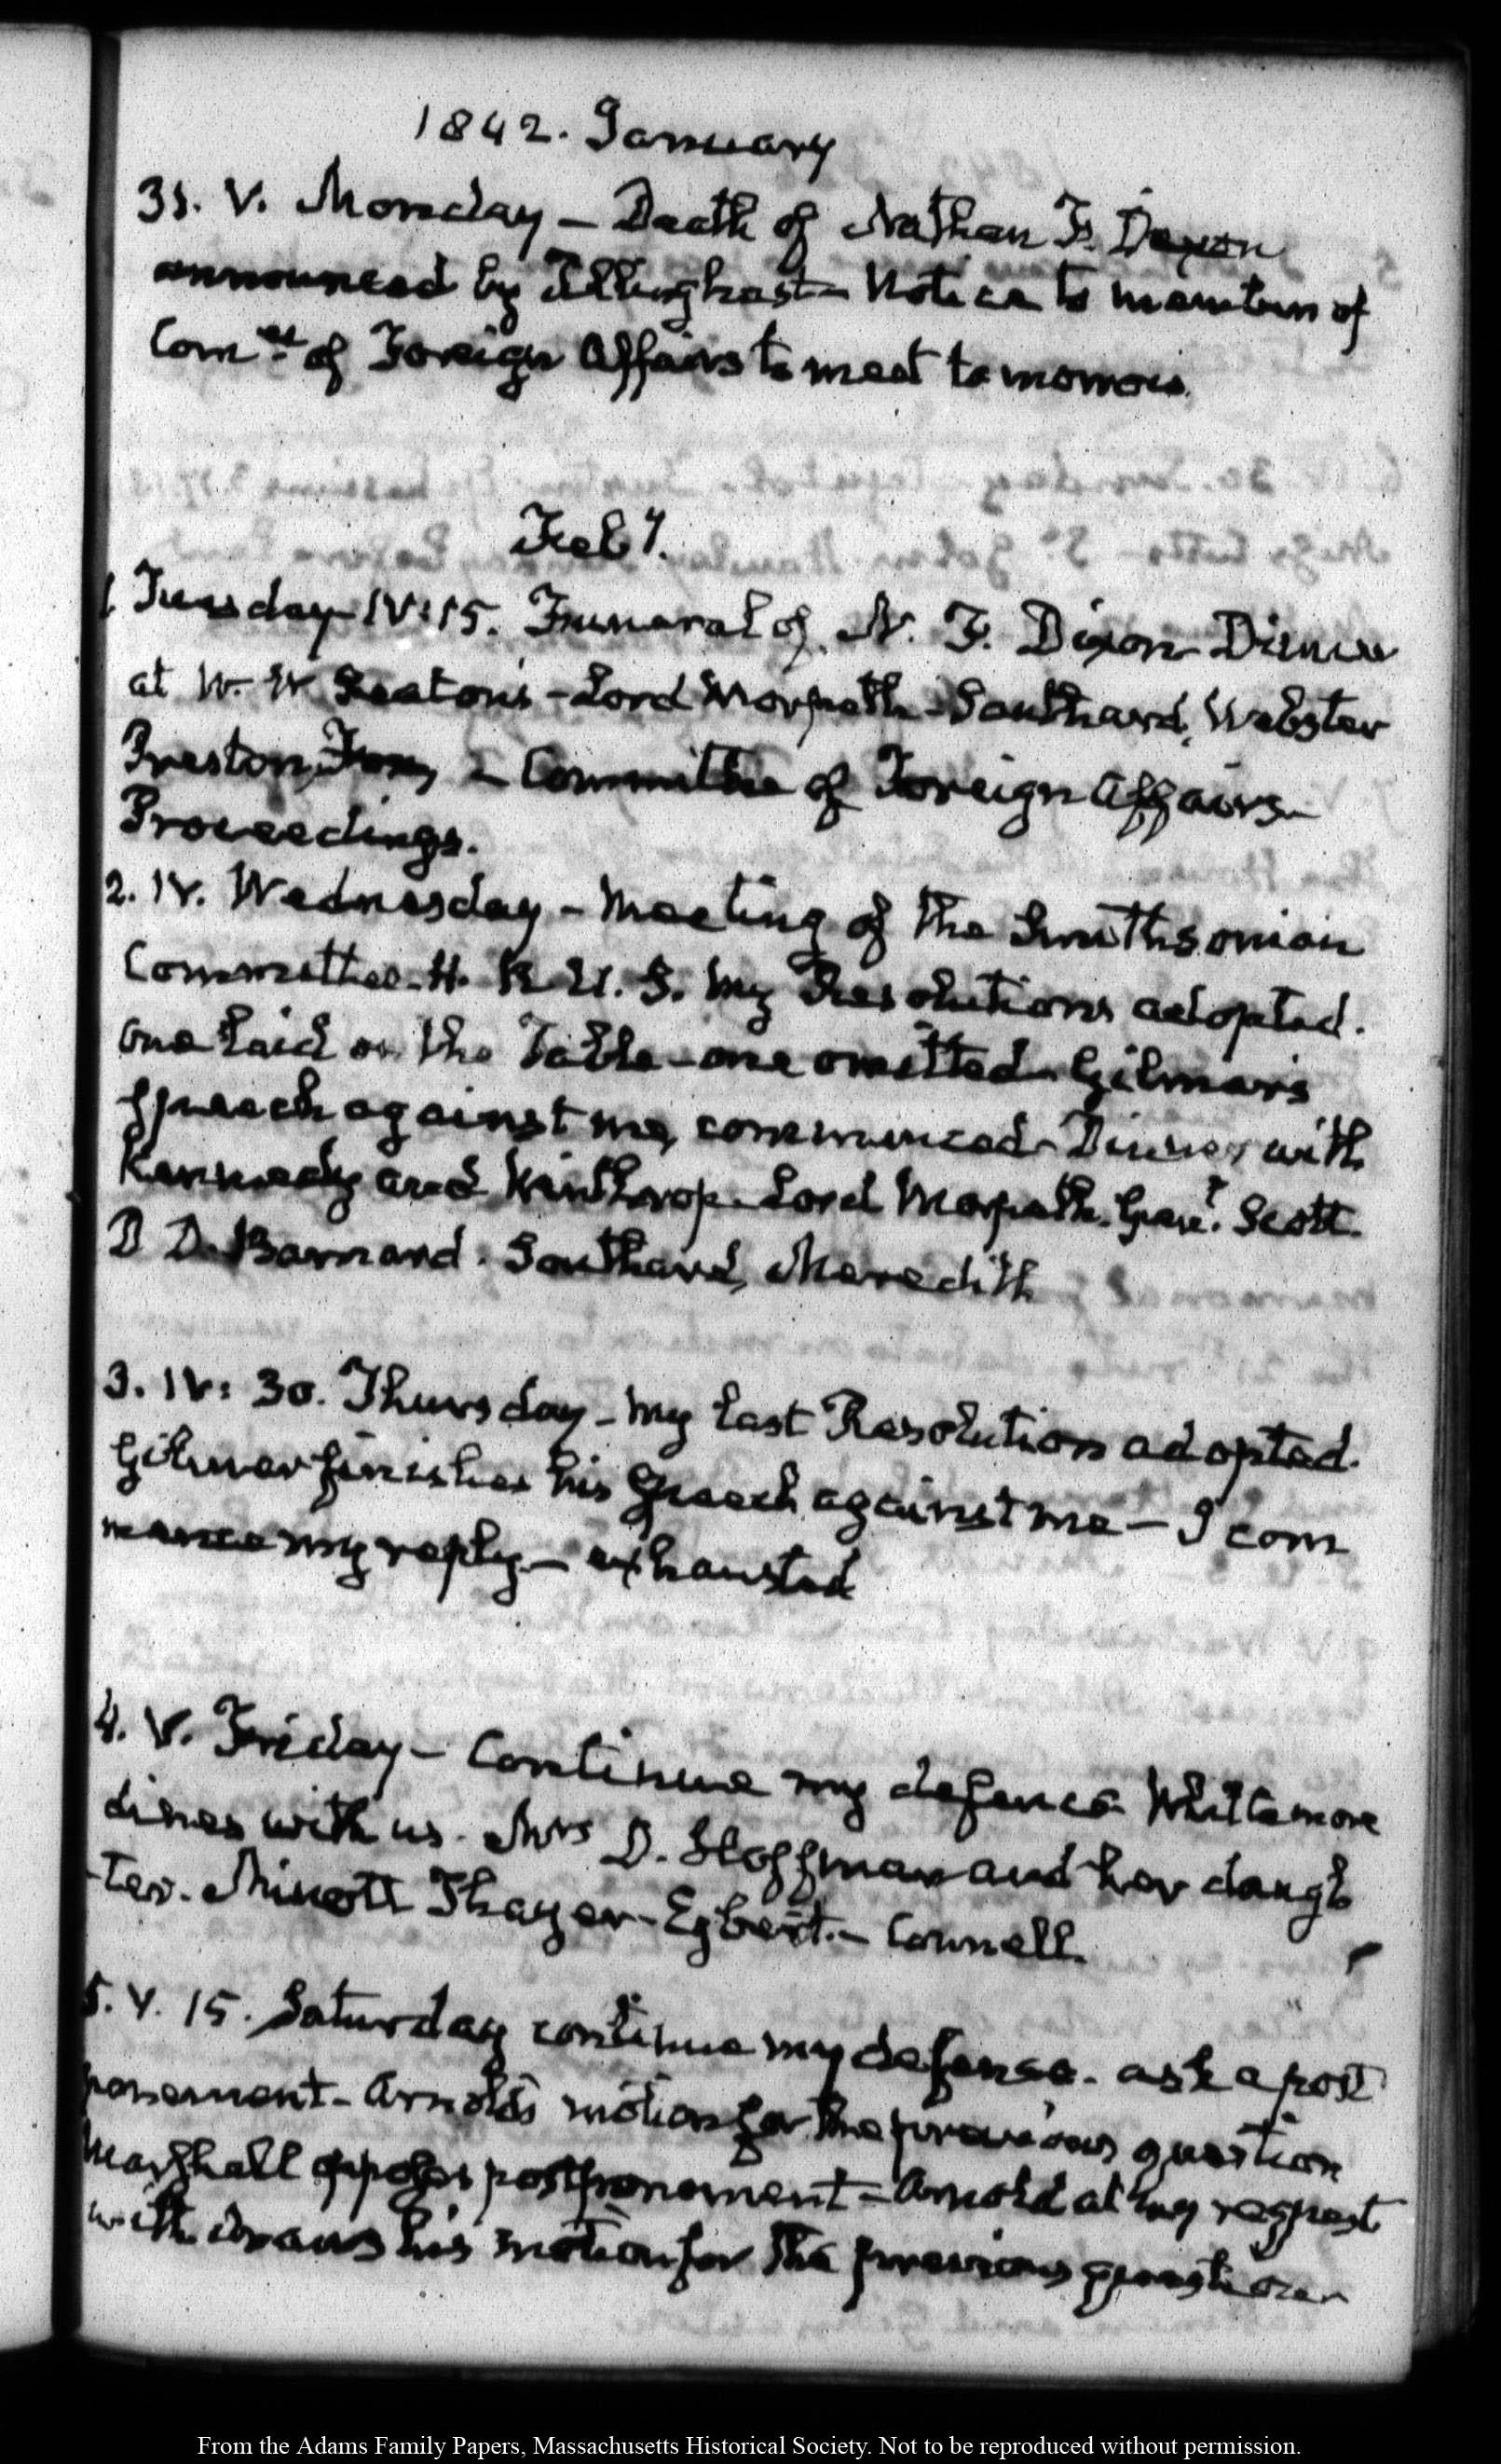 1842. January
31. V. Monday – Death of Nathan F. Dixon
announced by Tillinghast – Notice to members of
Comee. of Foreign Affairs to meet tomorrow.
Feby.
1 Tuesday IV:15. Funeral of N. F. Dixon Dinner
at W. W Seaton's – Lord Morpeth – Southard, Webster
Preston, Fox, – Committee of Foreign Affairs –
Proceedings.
2. IV. Wednesday – Meeting of the Smithsonian
Committee. H. R U. S. My Resolutions adopted.
one laid on the Table – one omitted – Gilmer's
Speech against me, commenced – Dinner with
Kennedy and Winthrop – Lord Morpeth. Genl. Scott.
D D. Barnard. Southard, Meredith
3. IV: 30. Thursday – My last Resolution adopted.
Gilmer finishes his Speech against me – I com
mence my reply – exhausted
4. V. Friday – Continue my defence. Whittemore
dines with us. Mrs D. Hoffman and her daugh
-ter. Minott Thayer – Egbert. – Connell.
5. V. 15. Saturday continue my defense. ask a post
ponement – Arnold's motion for the previous question
Marshall opposes postponement – Arnold at my request
withdraws his motion for the previous question
From the Adams Family Papers, Massachusetts Historical Society. Not to be reproduced without permission.